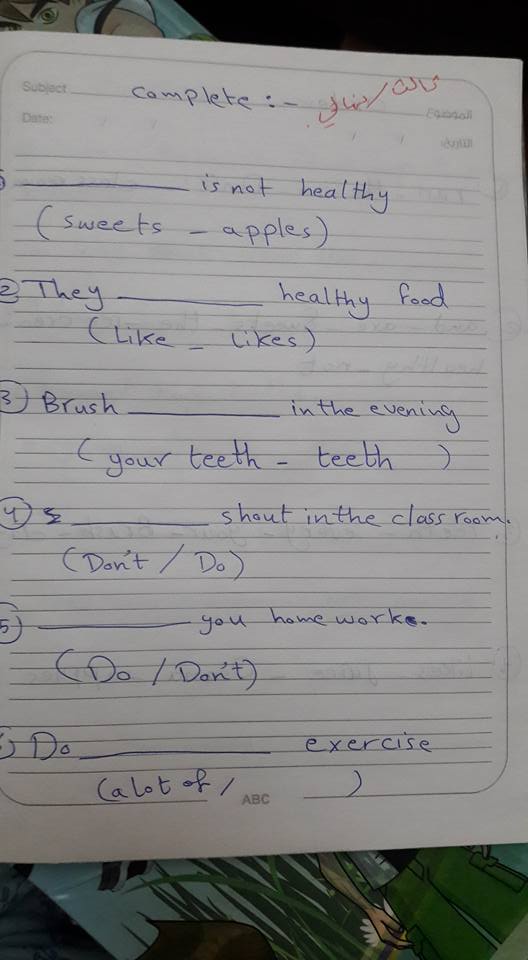 Subject complete :- ثالث / الموضوع
Date: / / / / التاريخ:
__________ is not healthy
(sweets - apples)
2 They __________ healthy food
(Like - likes)
3) Brush __________ in the evening
(your teeth - teeth )
4) __________ shout in the class room.
(Don't / Do)
5) __________ you home works.
(Do / Don't)
) Do __________ exercise
(a lot of / )
ABC